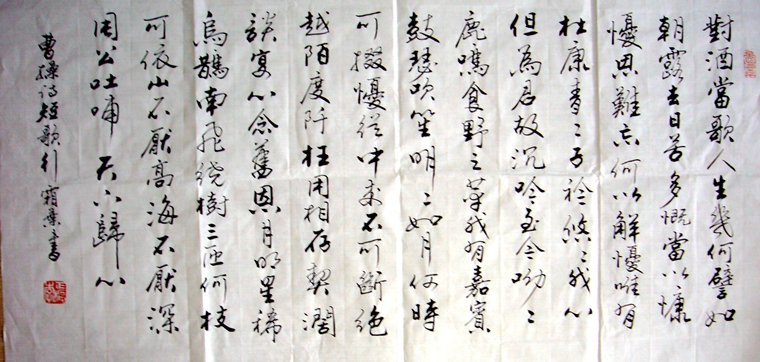 對酒當歌人生幾何譬如
朝露去日苦多慨當以慷
懮思難忘何以解懮唯有
杜康青〻子衿悠〻我心
但為君故沉吟至今呦〻
鹿鳴食野之苹我有嘉賓
鼓瑟吹笙明〻如月何時
可掇懮從中來不可斷絕
越陌度阡枉用相存契濶
談宴心念舊恩月明星稀
烏鵲南飛繞樹三匝何枝
可依山不厭高海不厭深
周公吐哺 天下歸心
曹操詩短歌行 霜葉書